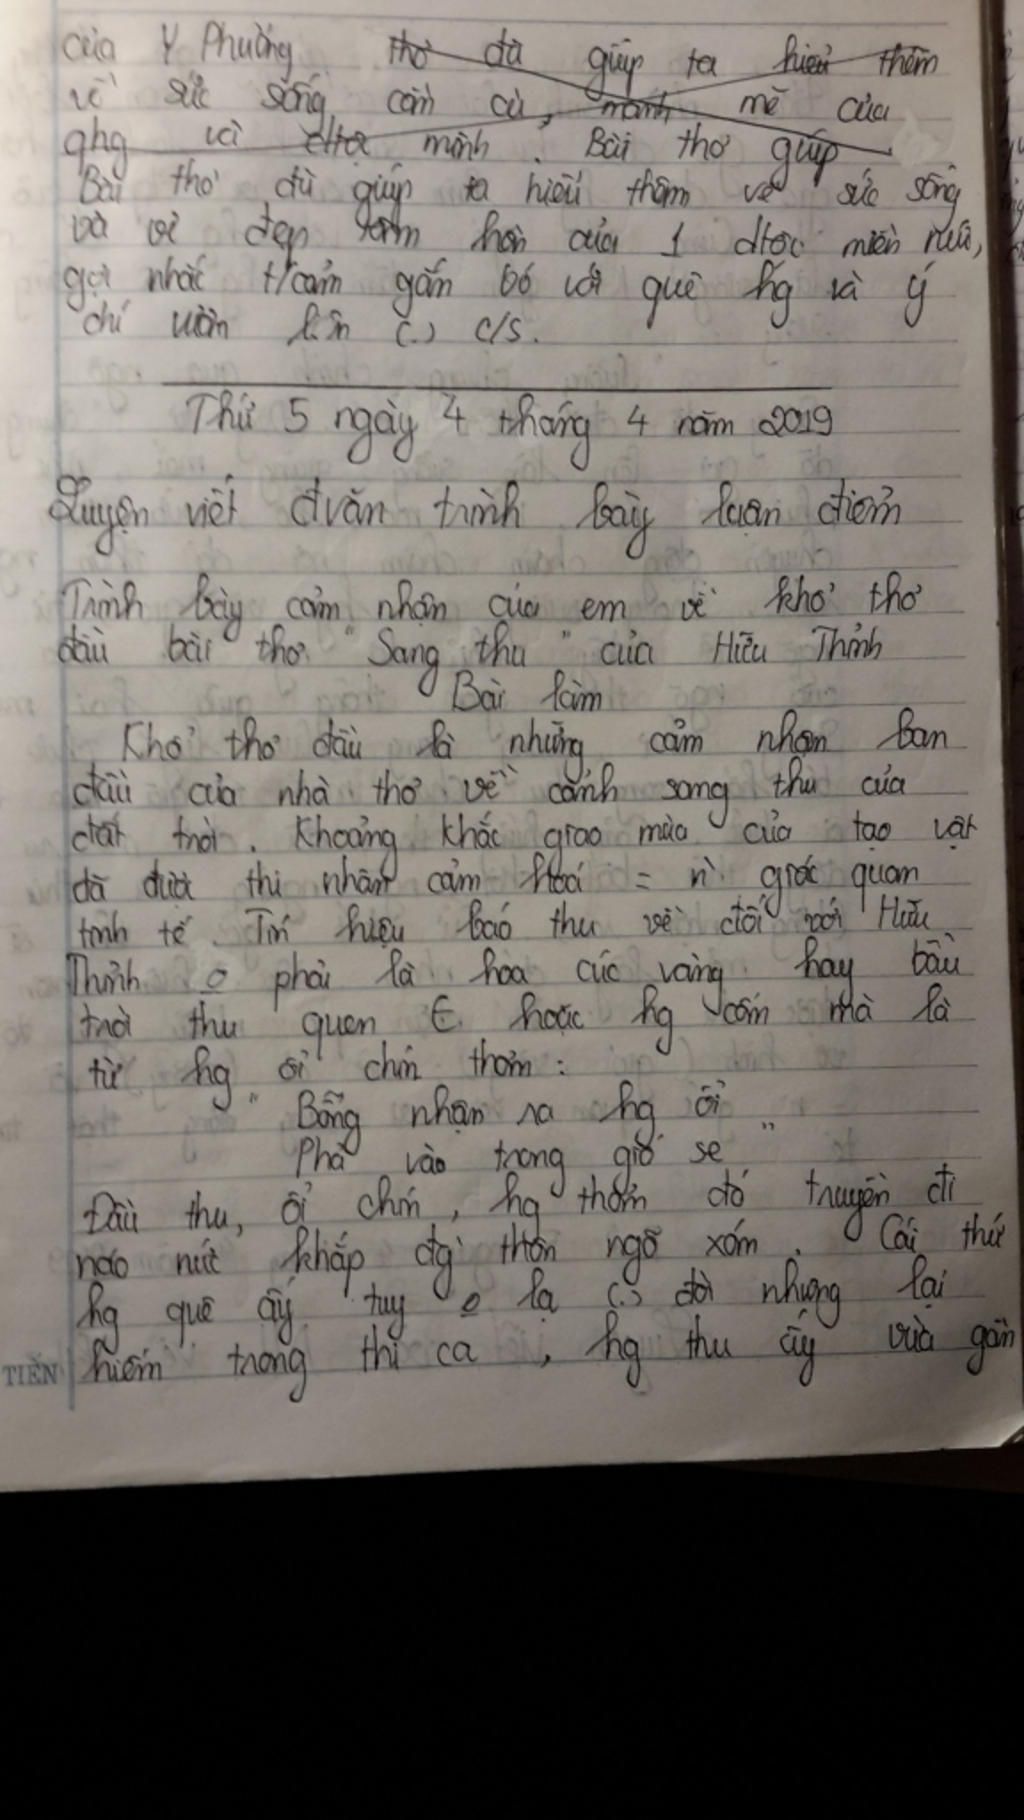 của Y Phương thơ đã giúp ta hiểu thêm
về sức sống cần cù, mạnh mẽ của
qhg và dtộc mình. Bài thơ giúp
Bài thơ đã giúp ta hiểu thêm về sức sống
và vẻ đẹp tâm hồn của 1 dtộc miền núi,
gợi nhắc t/cảm gắn bó với quê hg và ý
chí vươn lên (.) c/s.
Thứ 5 ngày 4 tháng 4 năm 2019
Luyện viết đvăn trình bày luận điểm
Trình bày cảm nhận của em về khổ thơ
đầu bài thơ "Sang thu" của Hữu Thỉnh
Bài làm
Khổ thơ đầu là những cảm nhận ban
đầu của nhà thơ về cảnh sang thu của
đất trời. Khoảng khắc giao mùa của tạo vật
đã được thi nhân cảm hoá = n` giác quan
tinh tế. Tín hiệu báo thu về đối với Hữu
Thỉnh o phải là hoa cúc vàng hay bầu
trời thu quen € hoặc hg cốm mà là
từ hg ổi chín thơm:
"Bỗng nhận ra hg ổi
Phả vào trong gió se"
Đầu thu, ổi chín, hg thơm đó truyền đi
náo nức khắp đg` thôn ngõ xóm. Cái thứ
hg quê ấy tuy o lạ (.) đời nhưng lại
hiếm trong thi ca, hg thu ấy vừa gần
TIẾN